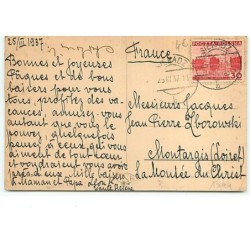 25/III 1937
Bonnes et joyeuses
Pâques et de bons
baisers pour vous
tous, profitez des va-
cances, amusez-vous
autant que vous le
pouvez, quelquefois
pensez à ceux, qui vous
aiment de tout cœur
et voudraient vous
prendre aux mille baisers
Maman et Papa
France
POCZTA POLSKA
30
Messieurs Jacques
Jean Pierre Zborowski
Montargis (Loiret)
La Montée du Christ